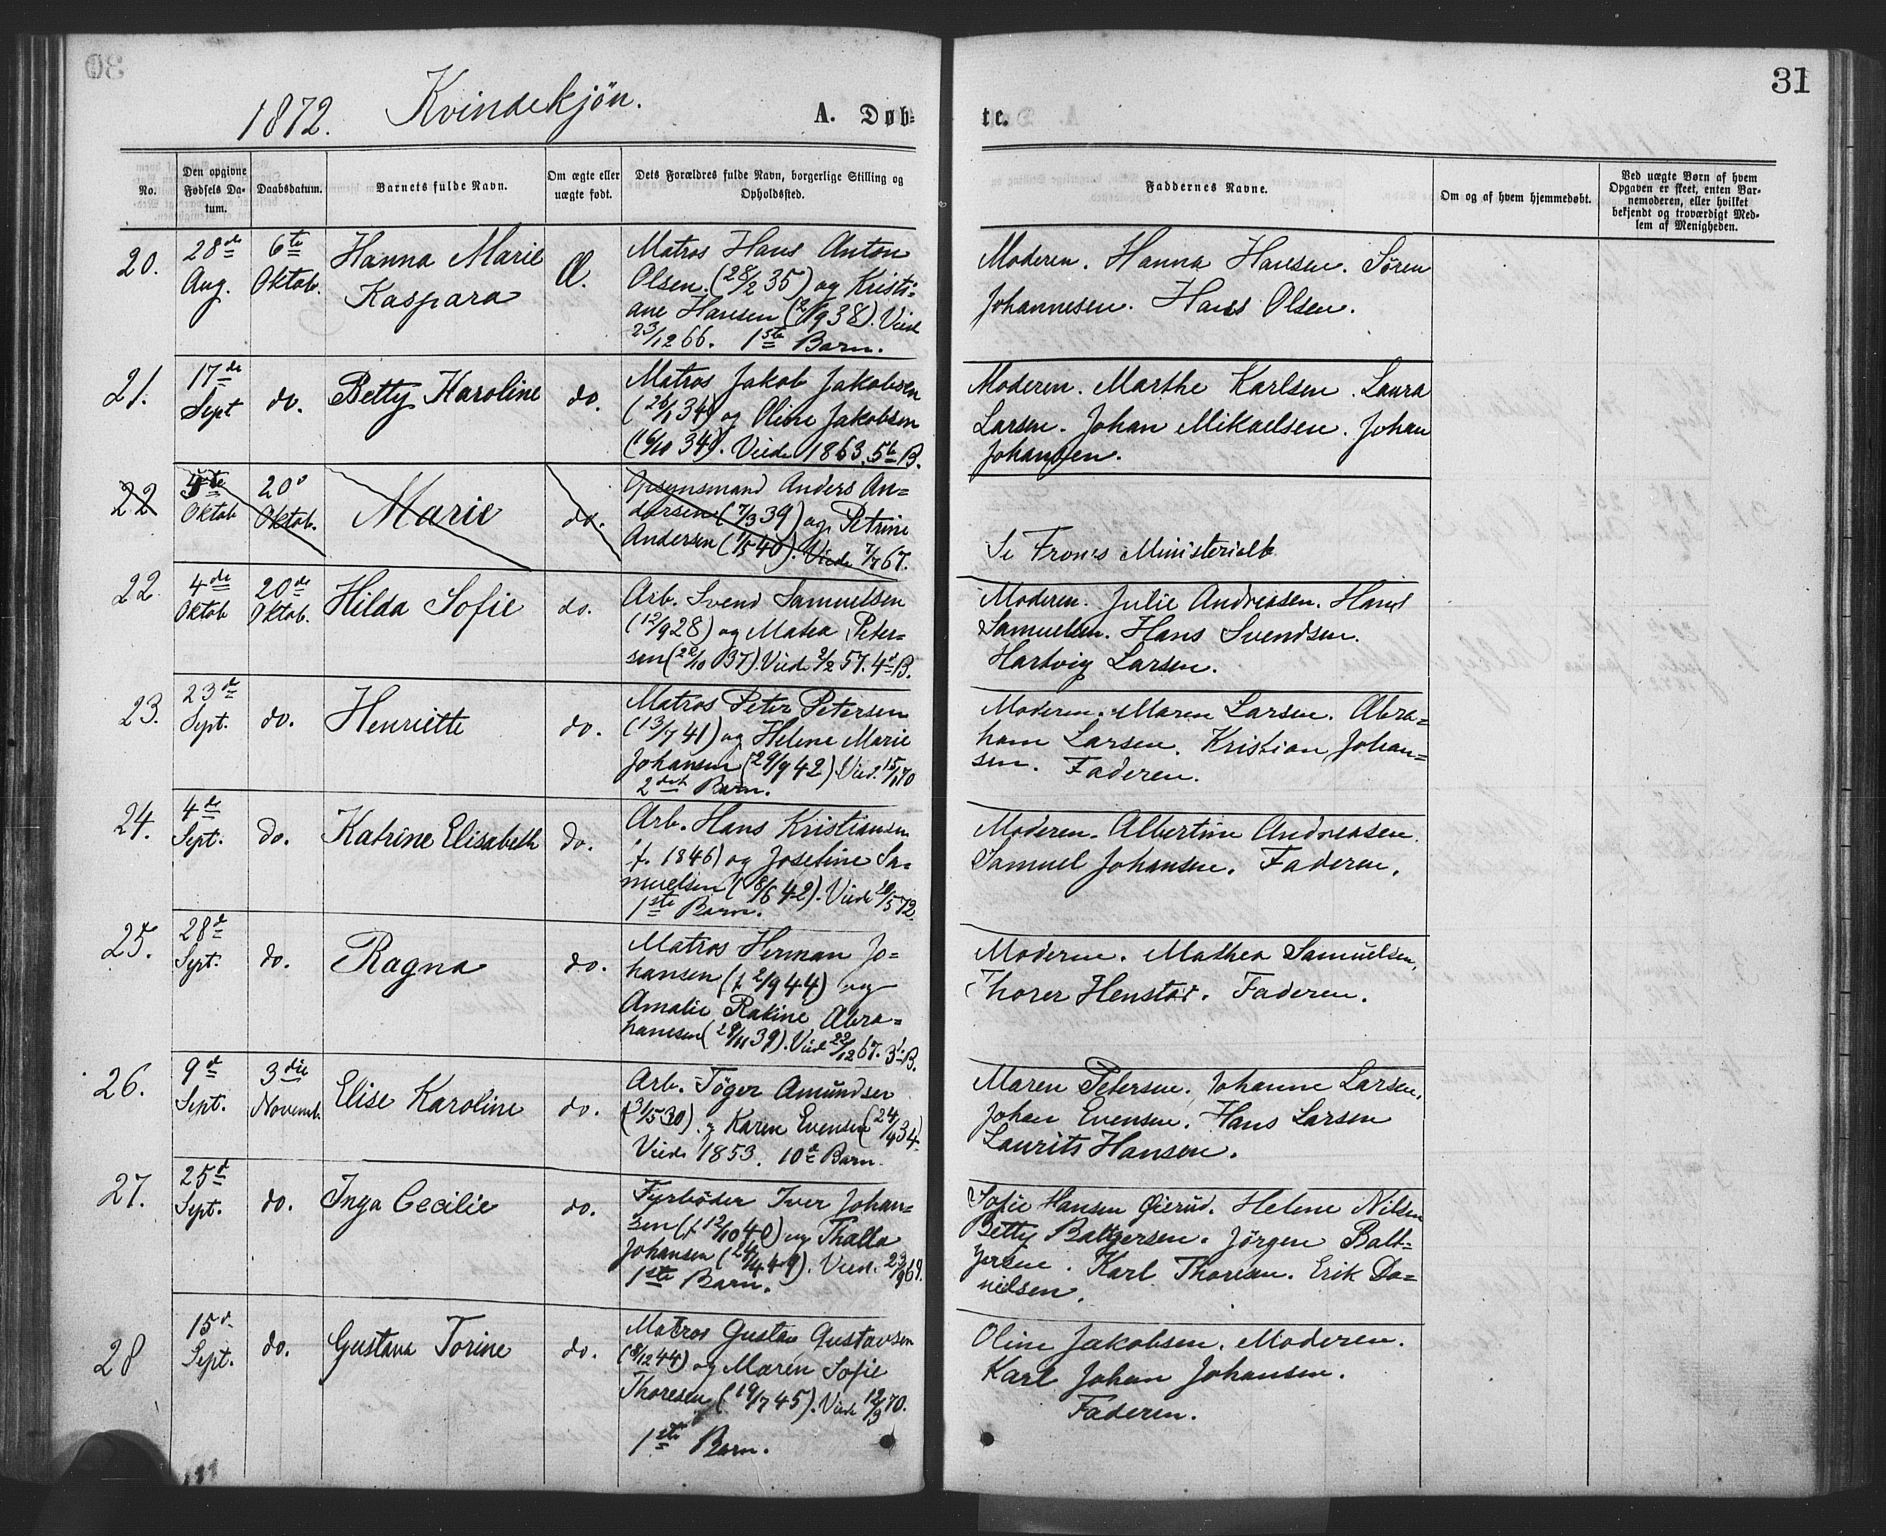 30
31
1872. Kvindekjön.
A. Døb-
te.
No.
Den opgivne Fødsels Da-tum.
Daabsdatum.
Barnets fulde Navn.
Om ægte eller uægte født.
Dets Forældres fulde Navn, borgerlige Stilling og Opholdssted.
Faddernes Navne.
Om og af hvem hjemmedøbt.
Ved uægte Børn af hvem Opgaven er skeet, enten Bar-nemoderen, eller hvilket bekjendt og troværdigt Med-lem af Menigheden.
20.
28de Aug.
6te Oktob.
Hanna Marie
Kaspara
Æ.
Matros Hans Anton
Olsen. (28/2 35) og Kristi=
ane Hansen (2/9 38). Viede
23/12 66. 1ste Barn.
Moderen. Hanna Hansen. Sören
Johannesen. Hans Olsen.
21.
17de Sept
do.
Betty Karoline
do.
Matros Jakob Jakobsen
(26/1 34) og Oline Jakobsen
(16/10 34). Viede 1863. 5te B.
Moderen. Marthe Karlsen. Laura
Larsen. Johan Mikaelsen. Johan
Johansen.
22
Oktob
20d Oktob.
Marie
do.
Opsynsmand Anders An=
dersen (7/3 39) og Petrine
Andersen (1/5 40). Viede 7/7 67.
Se Frones Ministerialb
22.
4de Oktob
20de Oktob.
Hilda Sofie
do.
Arb. Svend Samuelsen
(12/9 28) og Matea Peter-
sen (22/10 37). Vied 2/2 57. 4d B.
Moderen. Julie Andreasen. Hans
Samuelsen. Hans Svendsen.
Hartvig Larsen.
23.
23d Sept.
do.
Henriette
do.
Matros Peter Petersen
(13/7 41) og Helene Marie
Johansen (29/9 42). Vied. 15/1 70
2det Barn.
Moderen. Maren Larsen. Abra=
ham Larsen. Kristian Johan=
sen. Faderen.
24.
4de Sept.
do.
Katrine Elisabeth
do.
Arb. Hans Kristiansen
(f. 1846) og Josefine Sa-
muelsen (18/6 42). Viede 20/5 72.
1ste Barn.
Moderen. Albertine Andreasen.
Samuel Johansen. Faderen.
25.
28d Sept.
do.
Ragna
do.
Matros Herman Jo-
hansen (f. 2/9 44) og
Amalie Rakine Abra=
hamsen (28/11 39). Vied 22/12 67. 3d B.
Moderen. Mathea Samuelsen,
Thorer Henstad. Faderen.
26.
9d Sept.
3die Novemb.
Elise Karoline
do.
Arb. Töger Amundsen
(31/5 30). og Karen Evensen (24/4 34.
Viede 1853. 10d Barn.
Maren Petersen. Johanne Larsen,
Johan Evensen. Hans Larsen
Laurits Hansen.
27.
25d Sept.
do.
Inga Cecilie
do.
Fyrböder Iver Johan=
sen (f 12/10 40) og Thalla
Johansen (24/4 49). Vied. 23/9 69.
1ste Barn.
Sofie Hansen Öierud. Helene Nilsen
Betty Baltzersen. Jörgen Balt=
zersen. Karl Thoresen. Erik Da=
nielsen.
28
15d Sept.
do.
Gustava Torine
do.
Matros Gustav Gustavsen
(8/12 44) og Maren Sofie
Thoresen (19/7 45). Viede 12/9 70.
1ste Barn.
Oline Jakobsen. Moderen.
Karl Johan Johansen.
Faderen.